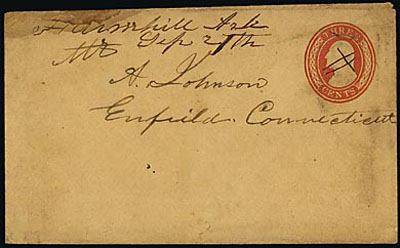 Ark
Mr Sep 27th
A. Johnson
Enfield. Connecticut
THREE
CENTS